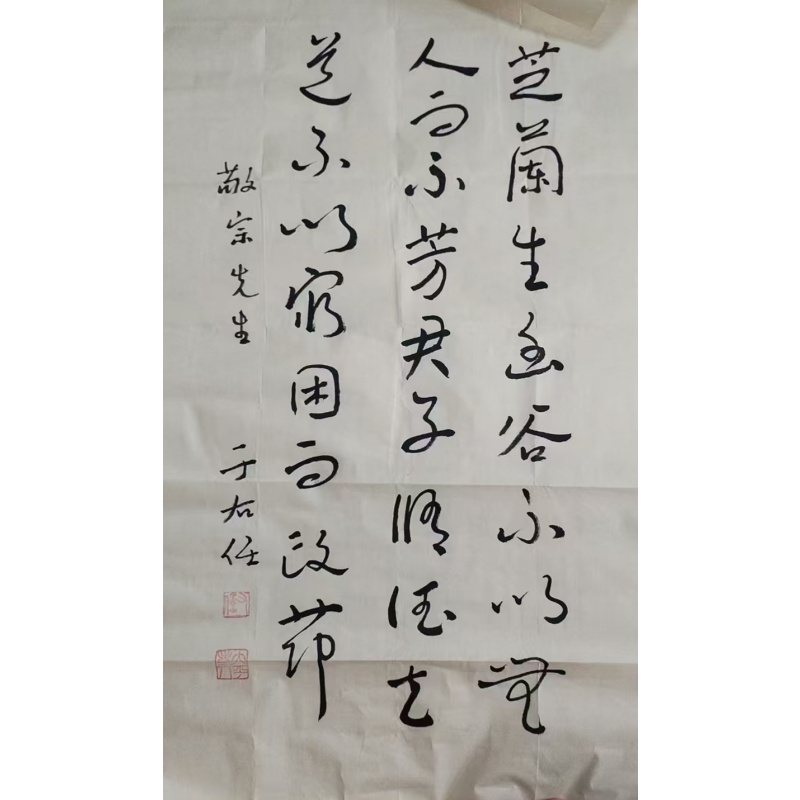 芝蘭生幽谷不以無
人而不芳君子脩德立
道不以窮困而改節
敬宗先生
于右任